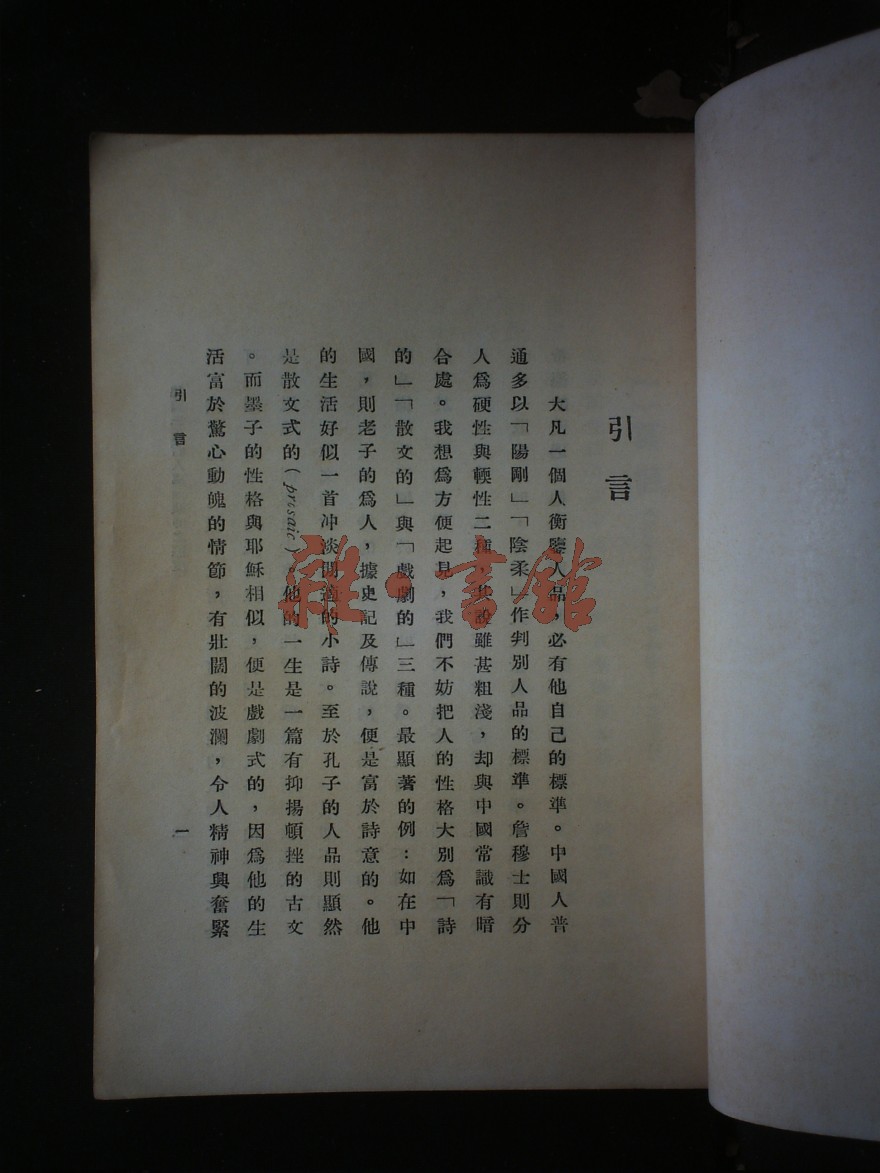 引言
大凡一個人衡鑒人品，必有他自己的標準。中國人普
通多以「陽剛」「陰柔」作判別人品的標準。詹穆士則分
人爲硬性與輭性二種，其說雖甚粗淺，却與中國常識有暗
合處。我想爲方便起見，我們不妨把人的性格大別爲「詩
的」「散文的」與「戲劇的」三種。最顯著的例：如在中
國，則老子的爲人，據史記及傳說，便是富於詩意的。他
的生活好似一首冲淡閒適的小詩。至於孔子的人品則顯然
是散文式的（prosaic），他的一生是一篇有抑揚頓挫的古文
。而墨子的性格與耶穌相似，便是戲劇式的，因爲他的生
活富於驚心動魄的情節，有壯闊的波瀾，令人精神興奮緊
引言
一
雜·書館